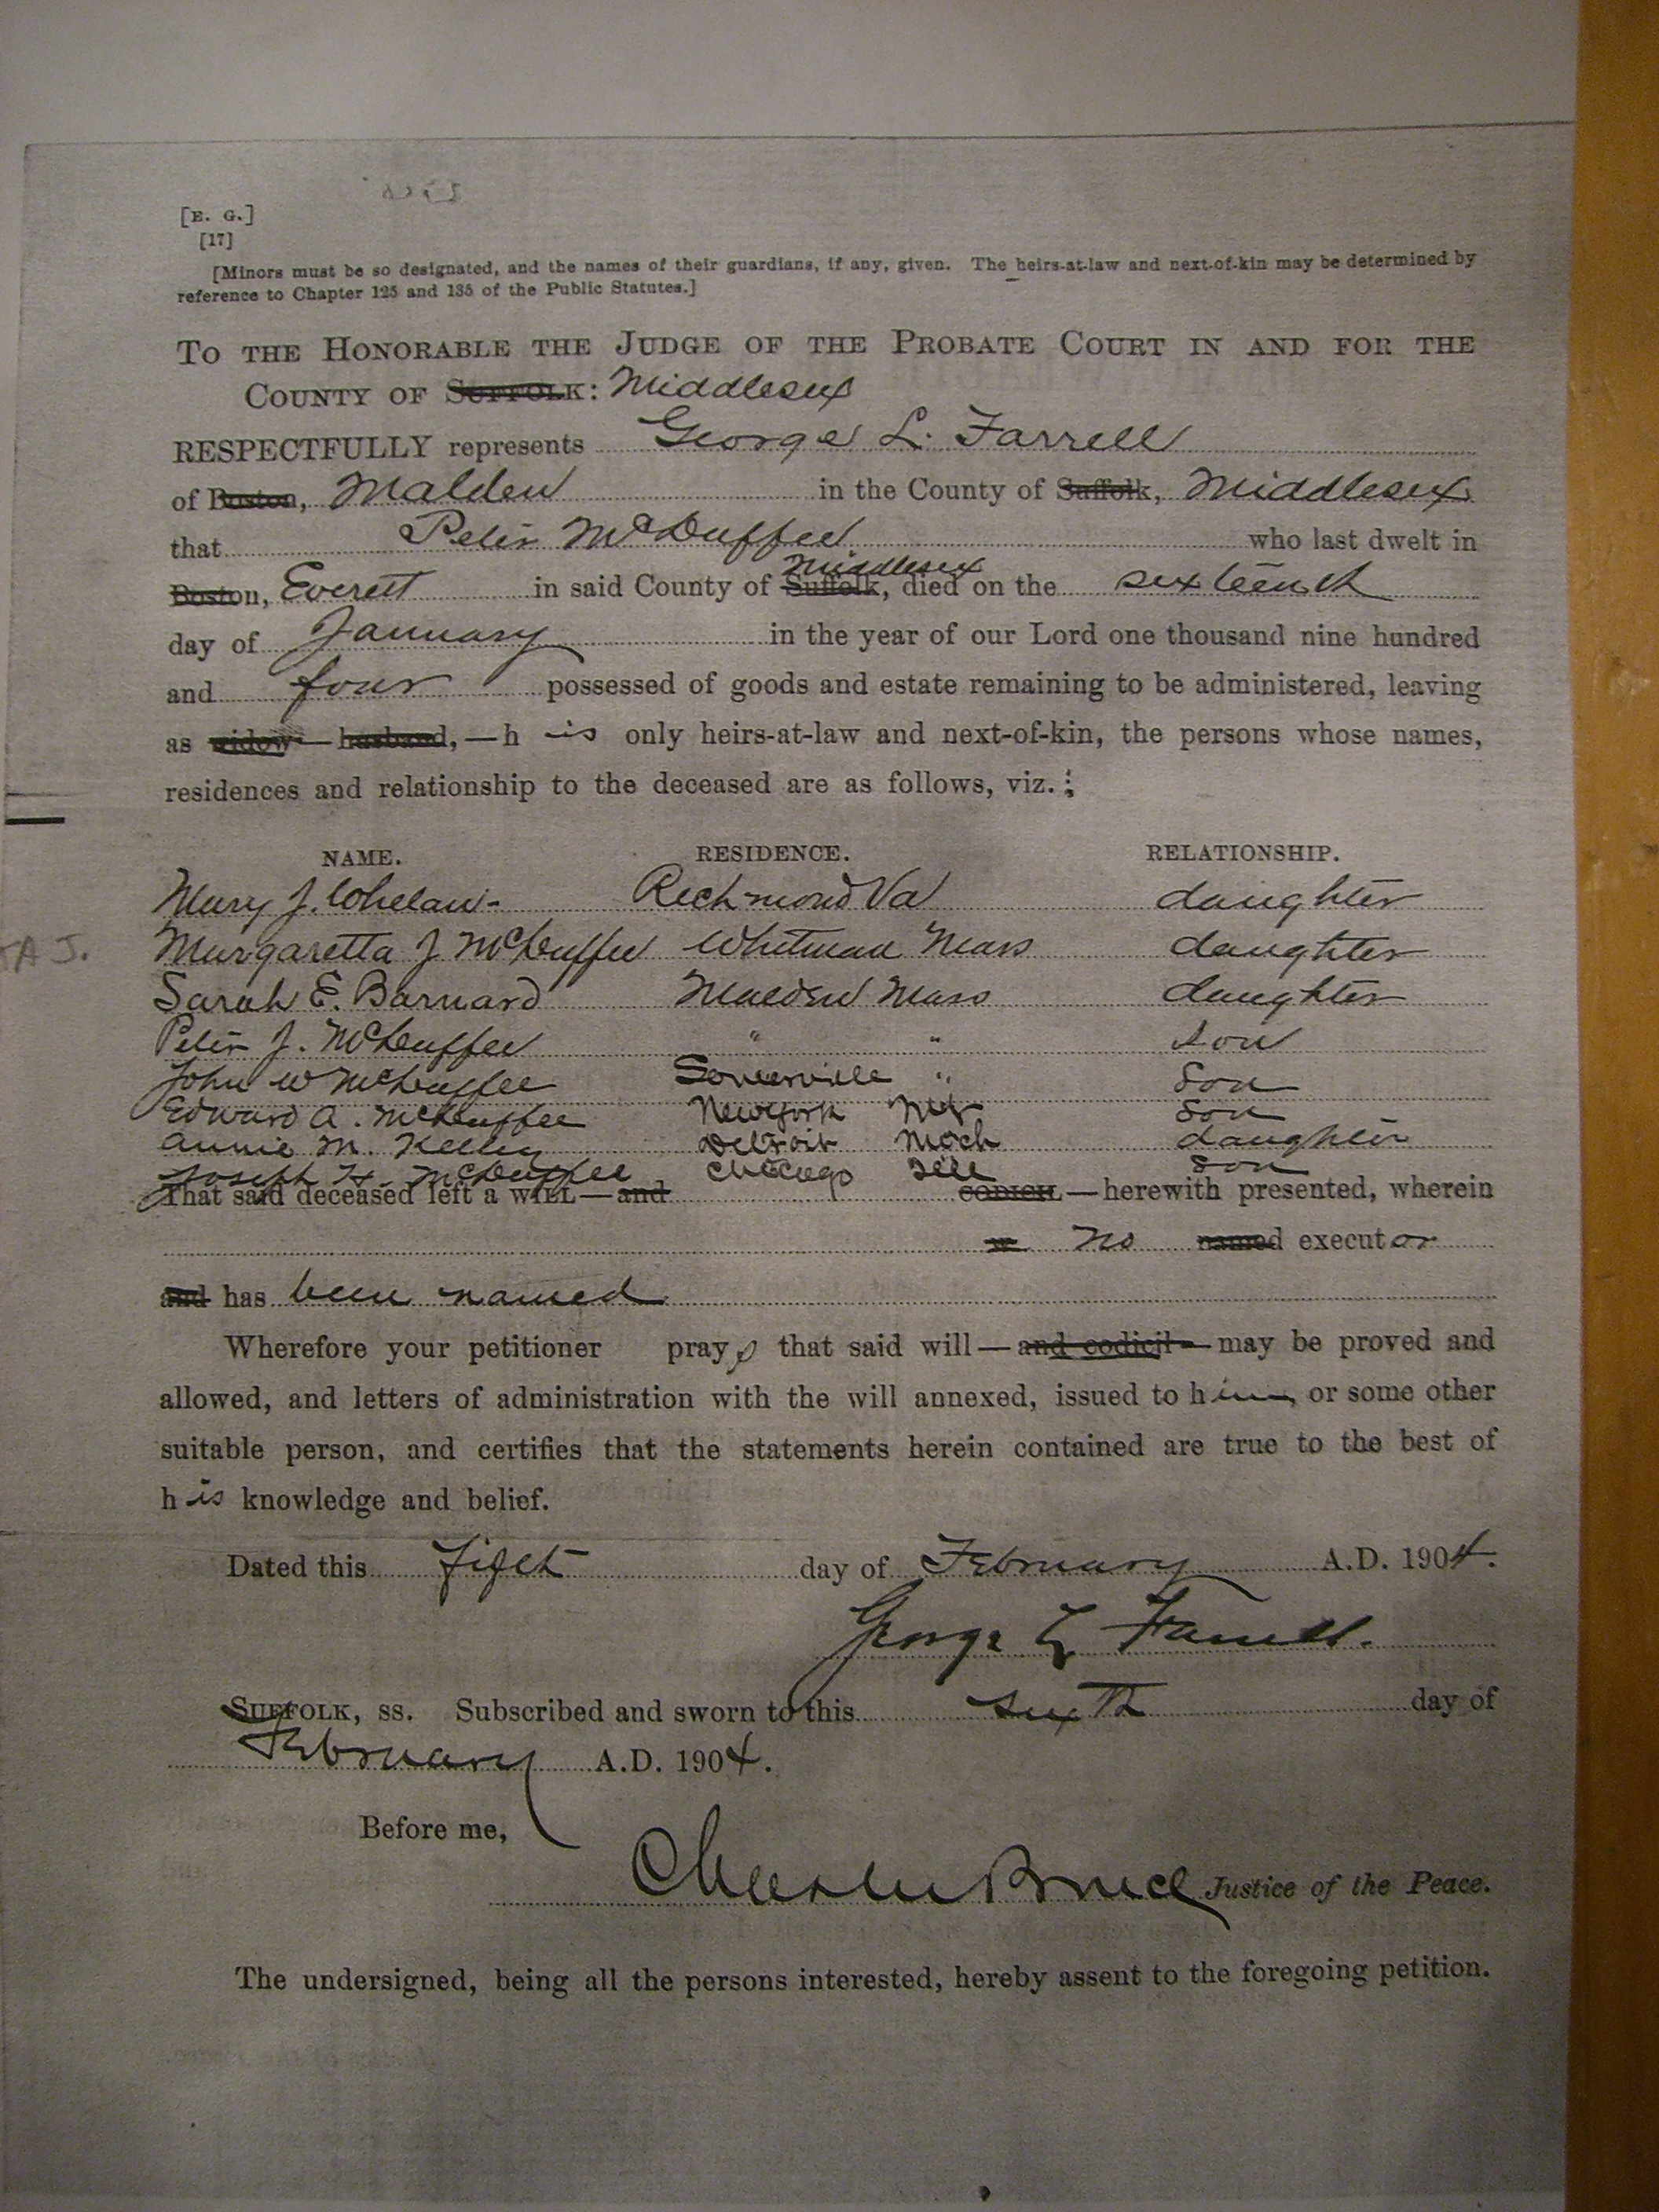 [E. G.]
[17]
[Minors must be so designated, and the names of their guardians, if any, given. The heirs-at-law and next-of-kin may be determined by
reference to Chapter 125 and 135 of the Public Statutes.]
TO THE HONORABLE THE JUDGE OF THE PROBATE COURT IN AND FOR THE
COUNTY OF SUFFOLK: Middlesex
RESPECTFULLY represents George L. Farrell
of Boston, Malden in the County of Suffolk, Middlesex
that Peter McDuffee who last dwelt in
Middlesex
Boston, Everett in said County of Suffolk, died on the sixteenth
day of January in the year of our Lord one thousand nine hundred
and four possessed of goods and estate remaining to be administered, leaving
as widow—husband,—h is only heirs-at-law and next-of-kin, the persons whose names,
residences and relationship to the deceased are as follows, viz.:
NAME. RESIDENCE. RELATIONSHIP.
Mary J. Whelan- Richmond Va daughter
TA J. Margaretta J McDuffee Whitman Mass daughter
Sarah E. Barnard Malden Mass daughter
Peter J. McDuffee " " son
John W McDuffee Somerville " Son
Edward A. McDuffee New York NY Son
Annie M. Kelley Detroit Mich daughter
Joseph H. McDuffee Chicago Ill son
That said deceased left a WILL—and CODICIL—herewith presented, wherein
no named executor
and has been named
Wherefore your petitioner prays that said will—and codicil—may be proved and
allowed, and letters of administration with the will annexed, issued to him, or some other
suitable person, and certifies that the statements herein contained are true to the best of
his knowledge and belief.
Dated this fifth day of February A.D. 1904.
George L Farrell.
SUFFOLK, ss. Subscribed and sworn to this sixth day of
February A.D. 1904.
Before me,
Bruce Justice of the Peace.
The undersigned, being all the persons interested, hereby assent to the foregoing petition.